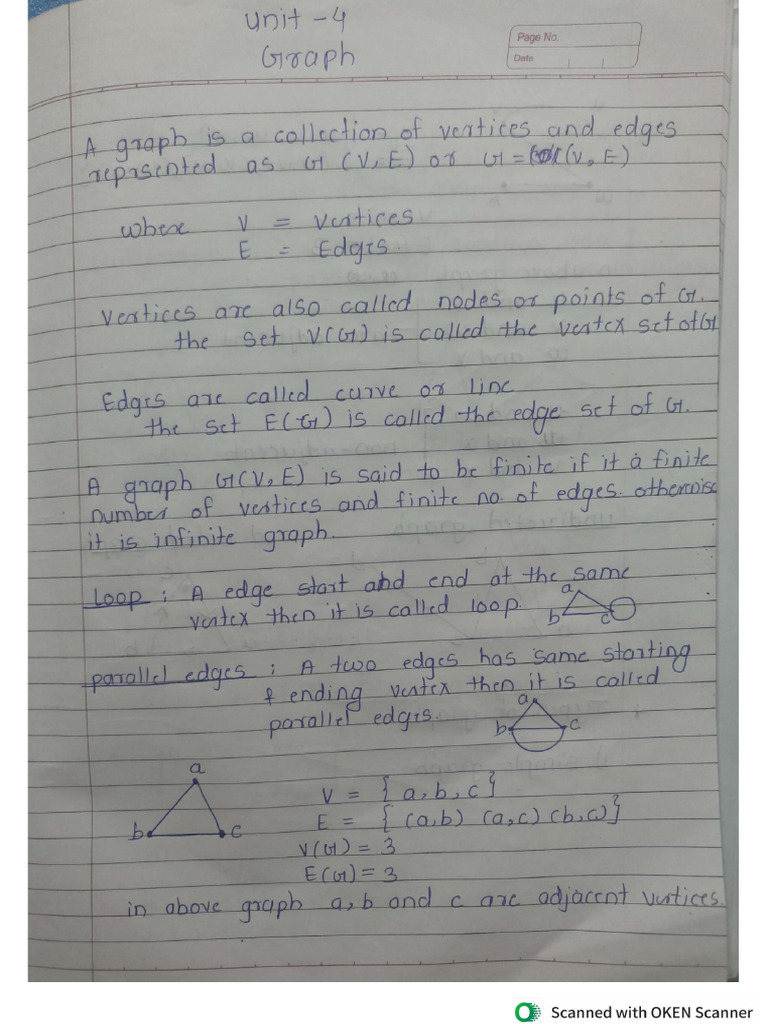 Unit - 4
Graph
Page No.
Date
A graph is a collection of vertices and edges
reprsented as G (V, E) or G = (V, E)
where V = Vertices
E = Edges.
Vertices are also called nodes or points of G.
the set V(G) is called the vertex set of G
Edges are called curve or line
the set E(G) is called the edge set of G.
A graph G(V, E) is said to be finite if it a finite
number of vertices and finite no. of edges. otherwise
it is infinite graph.
Loop : A edge start and end at the same
vertex then it is called loop.
a
b c
parallel edges : A two edges has same starting
& ending vertex then it is called
parallel edges.
a
b c
a
b c
V = { a, b, c }
E = { (a, b) (a, c) (b, c) }
V(G) = 3
E(G) = 3
in above graph a, b and c are adjacent vertices.
Scanned with OKEN Scanner